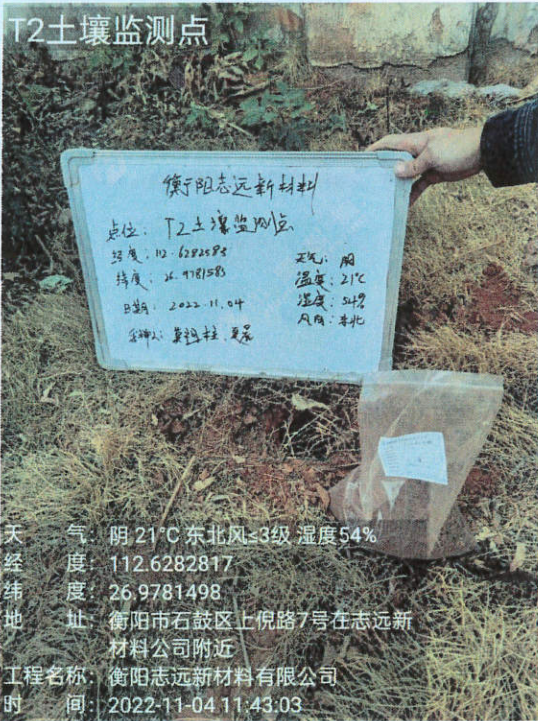 T2土壤监测点
衡阳志远新材料
点位: T2土壤监测点
经度: 112.6282583
纬度: 26.9781583
日期: 2022.11.04
采样人:
天气: 阴
温度: 21℃
湿度: 54%
风向: 东北
天 气: 阴 21℃ 东北风≤3级 湿度54%
经 度: 112.6282817
纬 度: 26.9781498
地 址: 衡阳市石鼓区上倪路7号在志远新
材料公司附近
工程名称: 衡阳志远新材料有限公司
时 间: 2022-11-04 11:43:03